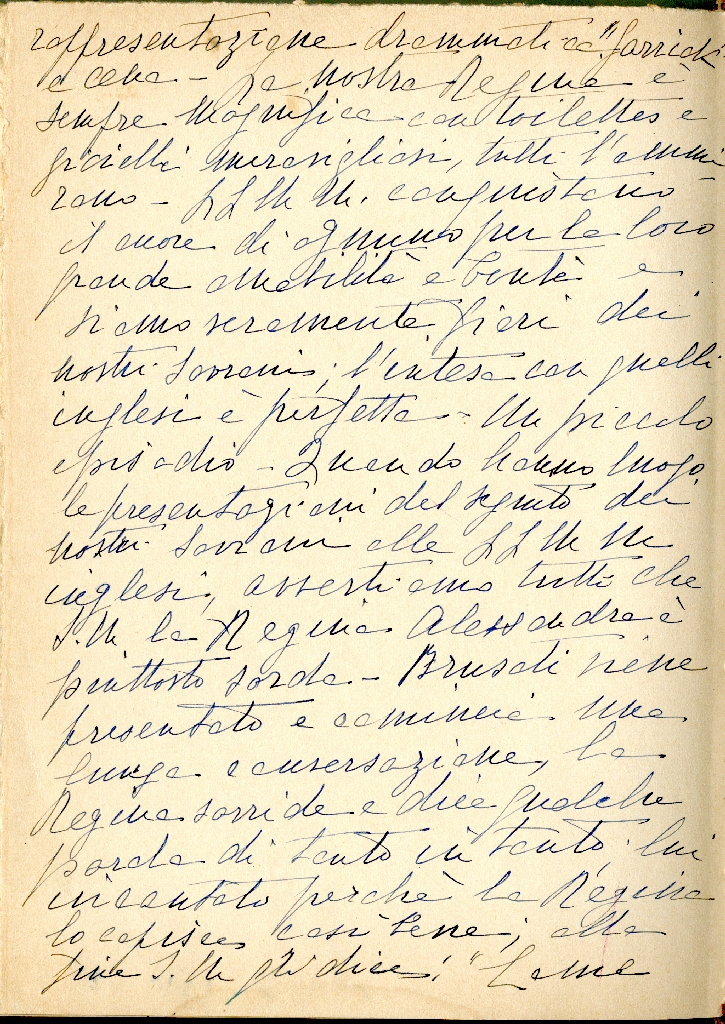 rappresentazione drammatica "Garrick"
e cena - La nostra Regina è
sempre magnifica con toilettes e
gioielli meravigliosi, tutti l'ammi
rano - LL. M. M. conquistano
il cuore di ognuno per la loro
grande amabilità e bontà e
siamo veramente fieri dei
nostri Sovrani; l'intesa con quelli
inglesi è perfetta - Un piccolo
episodio - Quando hanno luogo
le presentazioni del seguito dei
nostri Sovrani alle LL M M
inglesi, avvertiamo tutti che
S. M. la Regina Alessandra è
piuttosto sorda - Brusati viene
presentato e comincia una
lunga conversazione, la
Regina sorride e dice qualche
parola di tanto in tanto; lui
incantato perchè la Regina
lo capisce così bene; alla
fine S. M. gli dice: "Come